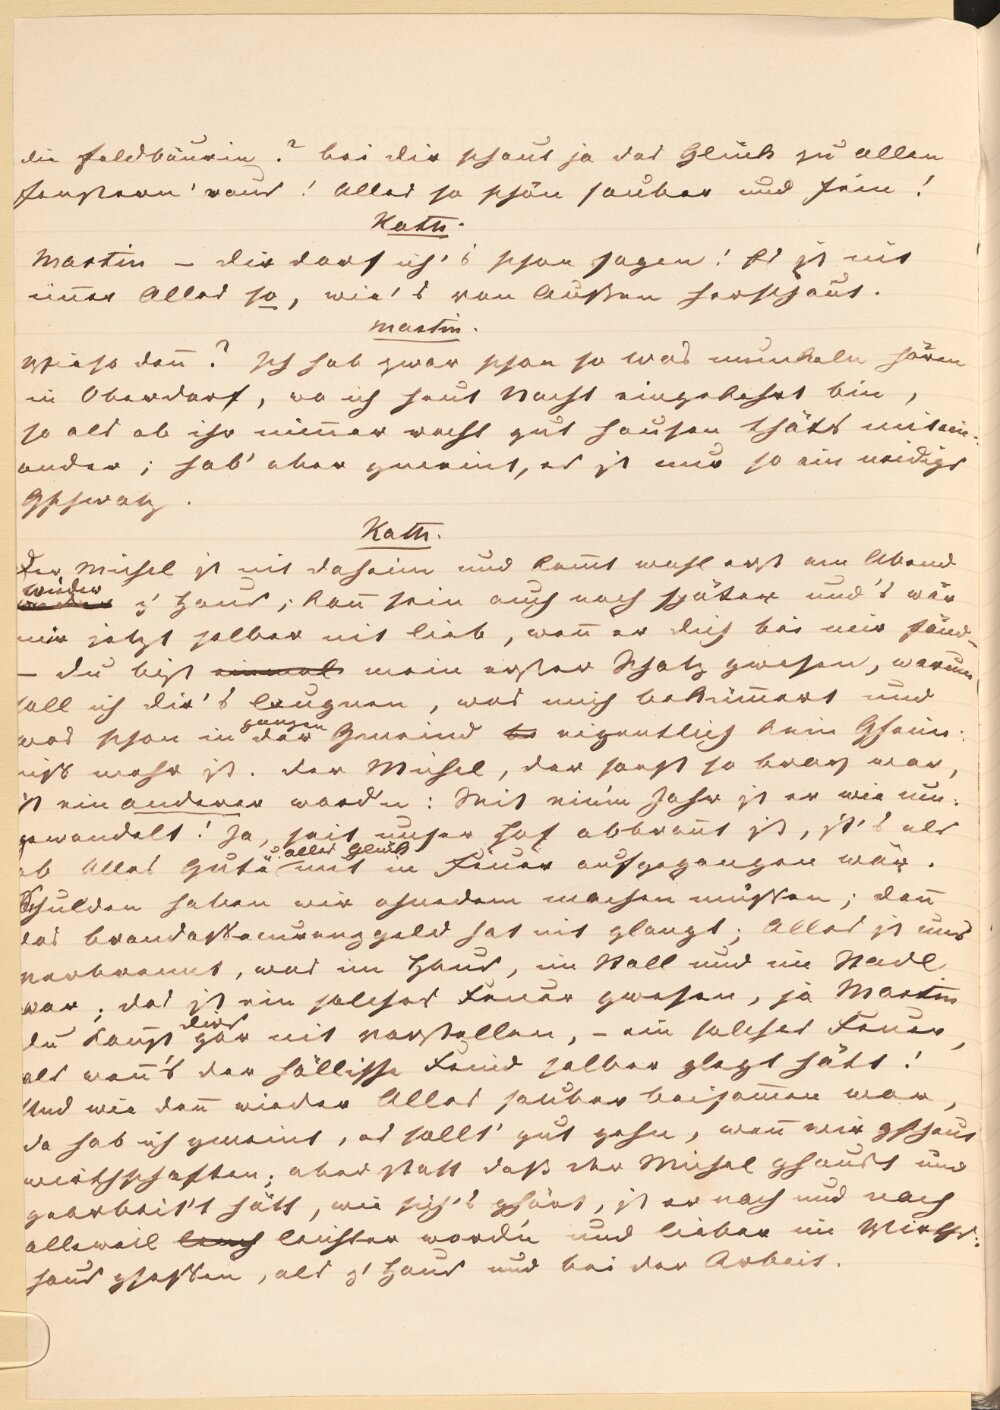 die Feldbäurin? bei dir schaut ja das Glück zu allen
Fenstern 'raus! Alles so schön sauber und fein!
Kath.
Martin – dir darf ich's schon sagen! Es ist nit
im̅er Alles so, wie's von Außen herschaut.
Martin.
Wieso den̅? Ich hab zwar schon so was munkeln hören
in Oberdorf, wo ich heut Nacht eingekehrt bin,
so als ob ihr nim̅er recht gut hausen thäts mitein-
ander; hab' aber gmeint, es ist nur so ein neidigs
Gschwatz.
Kath.
Der Michel ist nit daheim und kom̅t wohl erst am Abend
wieder z' Haus; kan̅ sein auch noch später und's wär
mir jetzt selber nit lieb, wen̅ er dich bei mir fänd
– du bist einmal mein erster Schatz gwesen, warum
soll ich dir's leugnen, was mich beküm̅ert und
was schon in der ganzen Gemeind eigentlich kein Gheim-
niß mehr ist. Der Michel, der sonst so brav war,
ist ein anderer worden: Seit ein'm Jahr ist er wie um-
gewandelt! Ja, seit unser Hof abbran̅t ist, ist's als
ob Alles Gute u. alles Glück mit in Feuer aufgegangen wär.
Schulden haben wir ohnedem machen müssen; den̅
das Brandassecuranzgeld hat nit glangt; Alles ist uns
verbrannt, was im Haus, im Stall und im Stadl
war; das ist ein solches Feuer gwesen, ja Martin
du kan̅st dirs gar nit vorstellen, – ein solches Feuer,
als wen̅'s der höllische Feind selber glegt hätt!
Und wie dan̅ wieder Alles sauber beisam̅en war,
da hab ich gmeint, es sollt' gut gehn, wen̅ wir gscheut
wirthschaften; aber statt daß der Michel ghaust und
gearbeit't hätt, wie sich's ghört, ist er nach und nach
alleweil leichter word'n und lieber im Wirths-
haus gsessen, als z' Haus und bei der Arbeit.